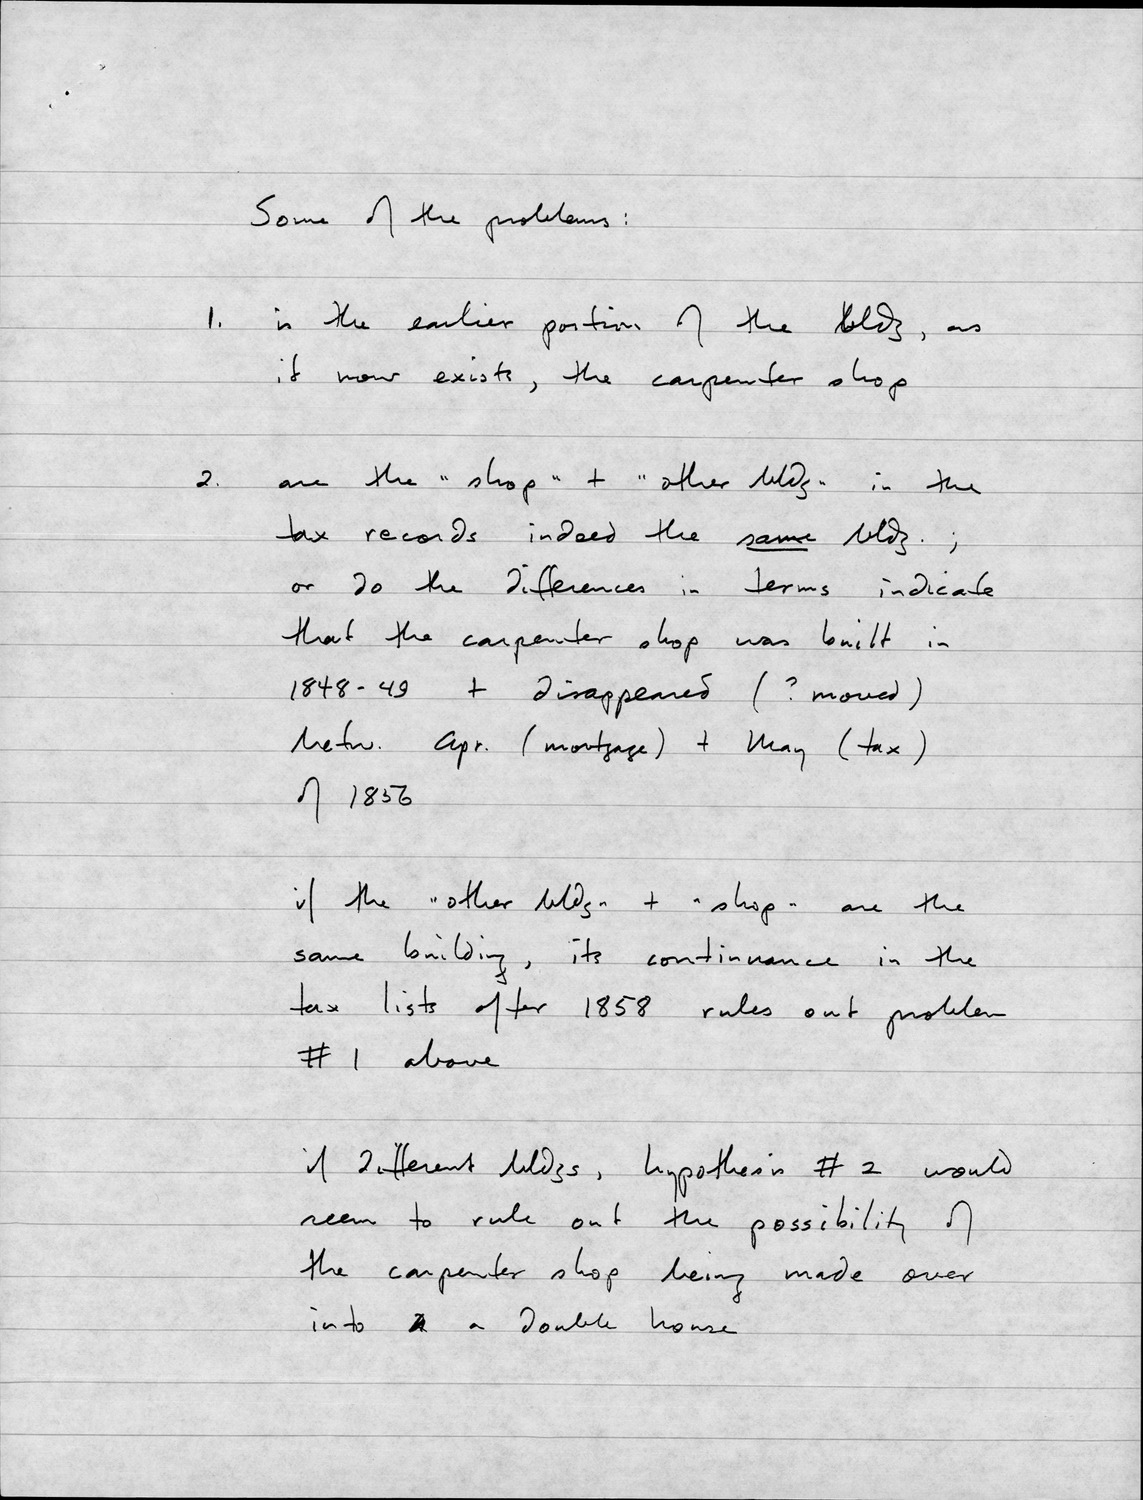 Some of the problems:
1. is the earlier portion of the bldg, as
it now exists, the carpenter shop
2. are the "shop" + "other bldg" in the
tax records indeed the same bldg. ;
or do the differences in terms indicate
that the carpenter shop was built in
1848-49 + disappeared (? moved)
betw. Apr. (mortgage) + May (tax)
of 1856
if the "other bldg" + "shop" are the
same building, its continuance in the
tax lists after 1858 rules out problem
#1 above
if different bldgs, hypothesis #2 would
seem to rule out the possibility of
the carpenter shop being made over
into a double house